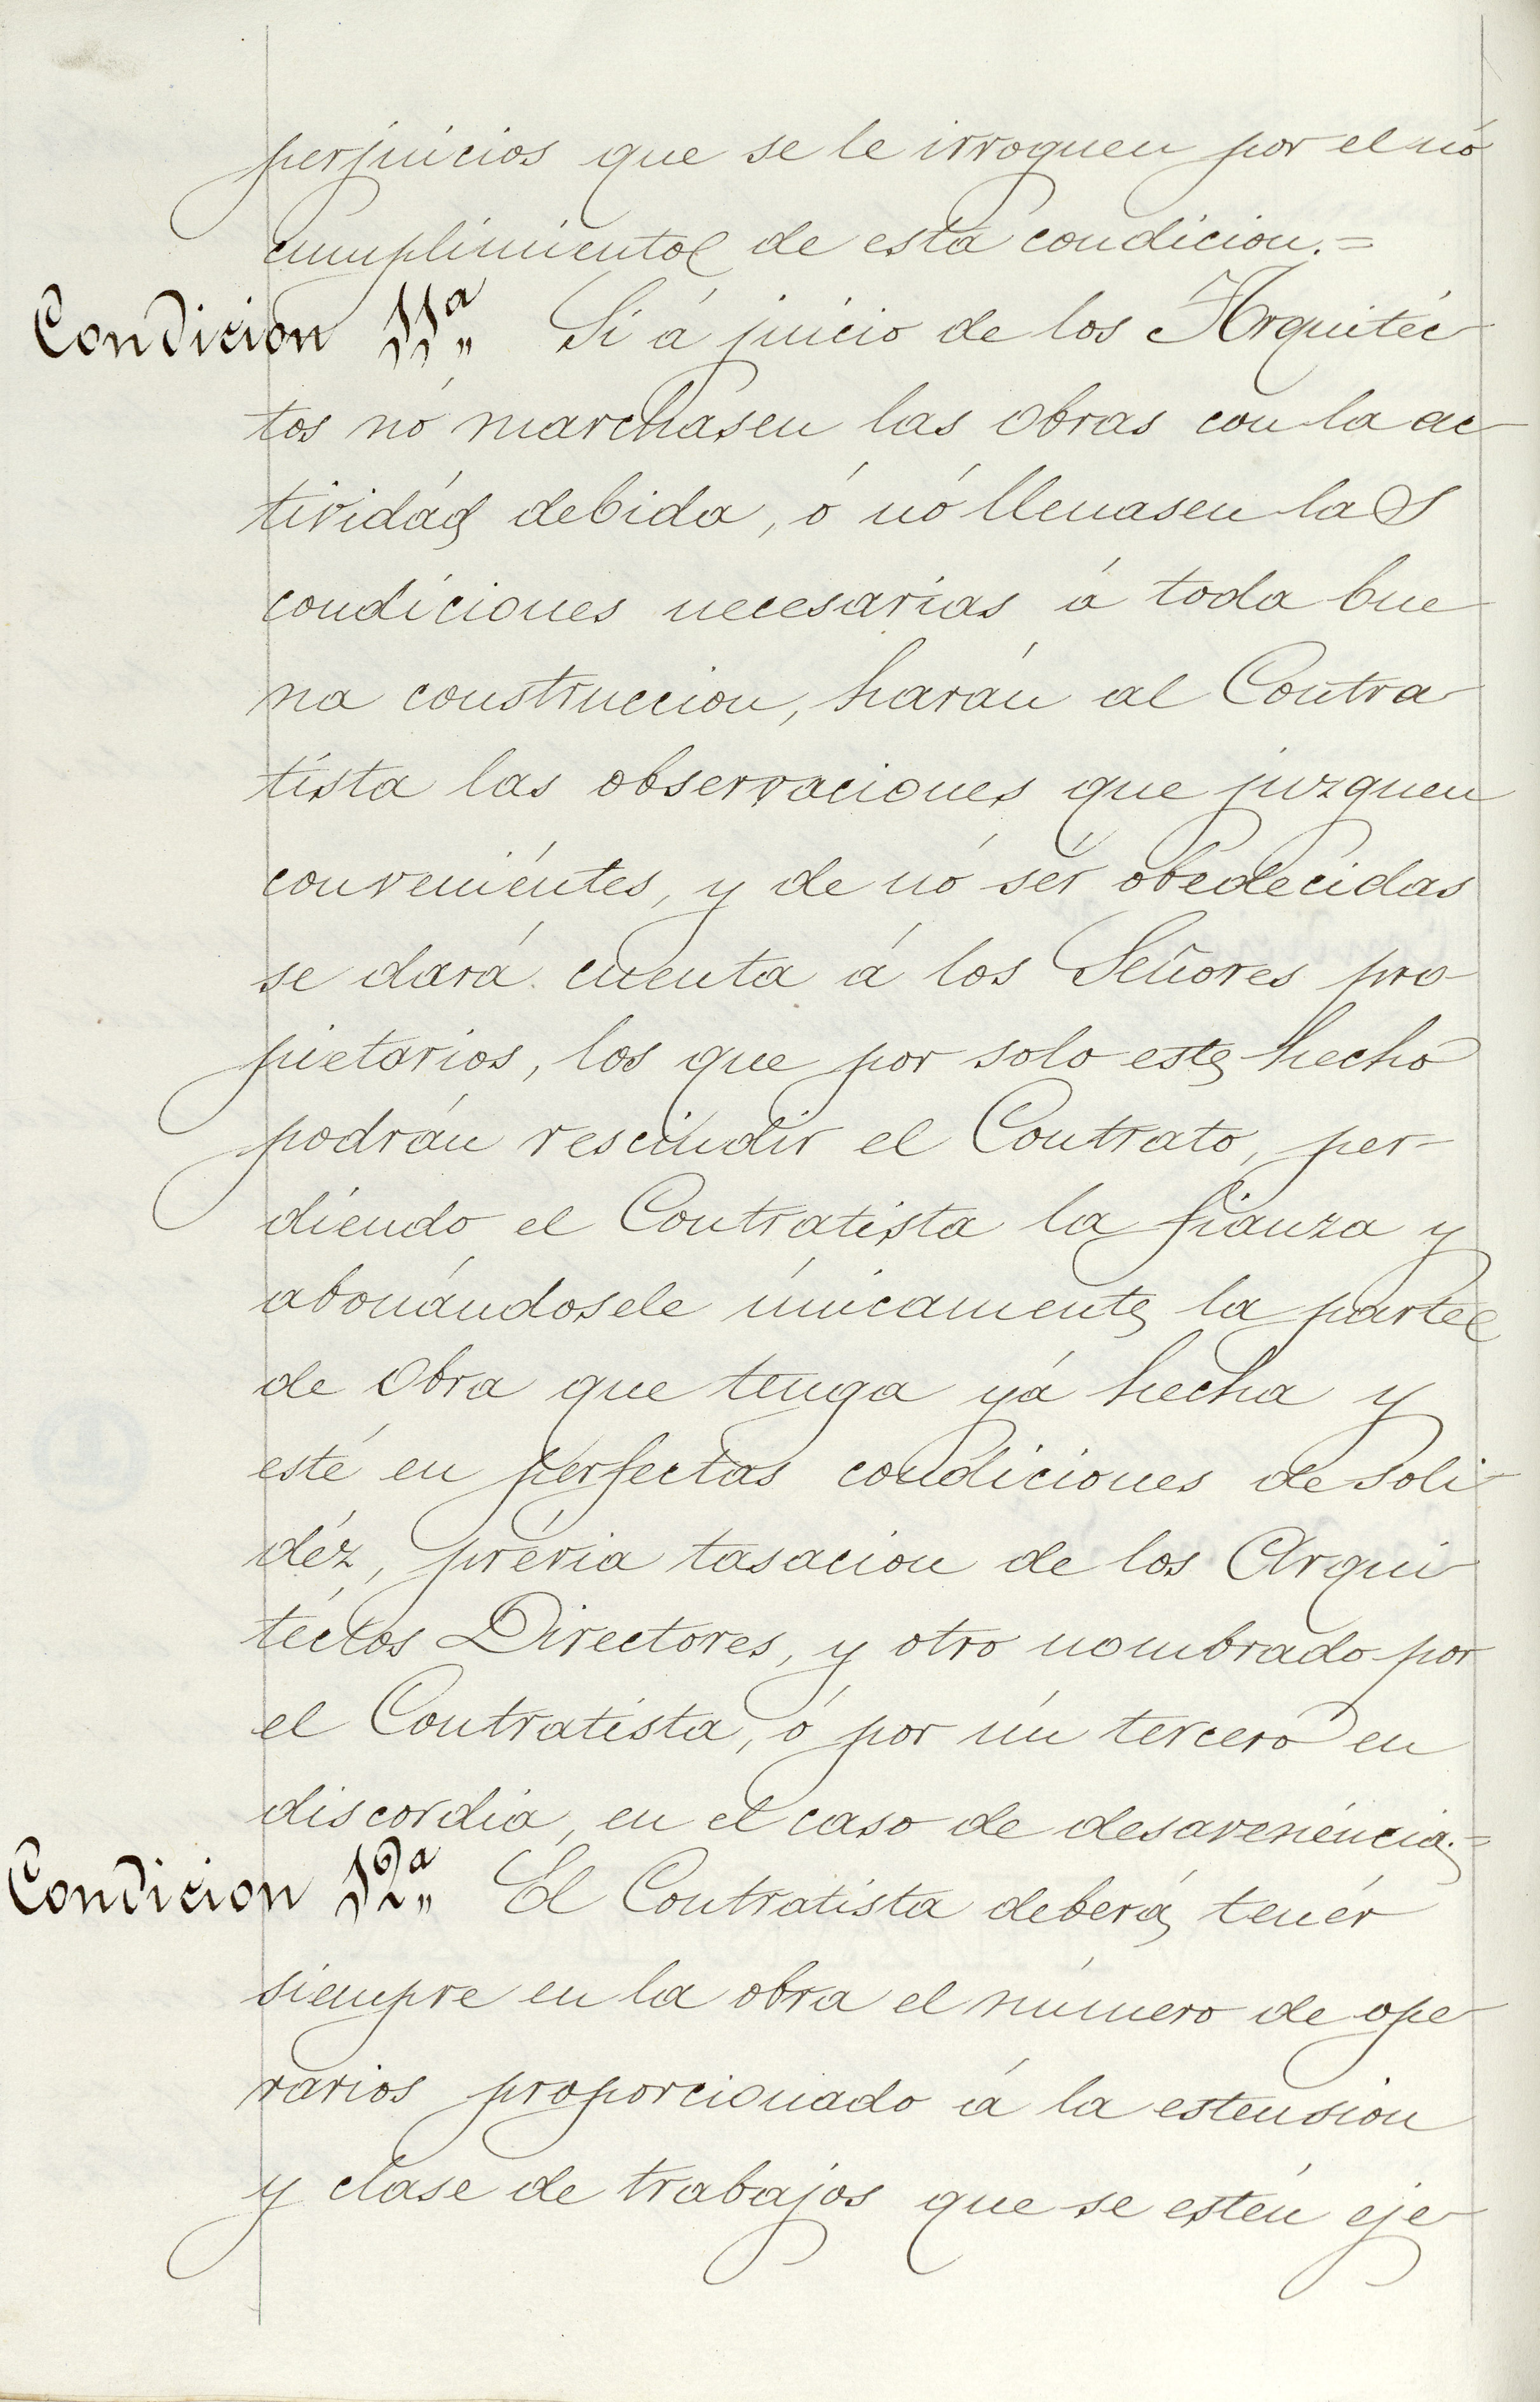 perjuicios que se le irroguen por el nó
cumplimiento de esta condicion.=
Condicion 11ª„ Si á juicio de los Arquitéc
tos nó marchasen las obras con la ac-
tividád debida, ó nó llenasen las
condiciones necesarias á toda bue
na construccion, harán al Contra
tista las observaciones que juzguen
conveniéntes, y de nó sér obedecidas
se dará cuenta á los Señores pro-
pietarios, los que por solo este hecho
podrán rescindir el Contrato, per-
diendo el Contratista la fianza y
abonándosele únicamente la parte
de obra que tenga yá hecha y
esté en perfectas condiciones de soli-
déz, prévia tasacion de los Arqui
téctos Directores, y otro nombrado por
el Contratista, ó por ún tercero en
discordia, en el caso de desavenéncia.=
Condicion 12ª„ El Contratista deberá tenér
siempre en la obra el número de ope-
rarios proporcionado á la estension
y clase de trabajos que se estén eje-